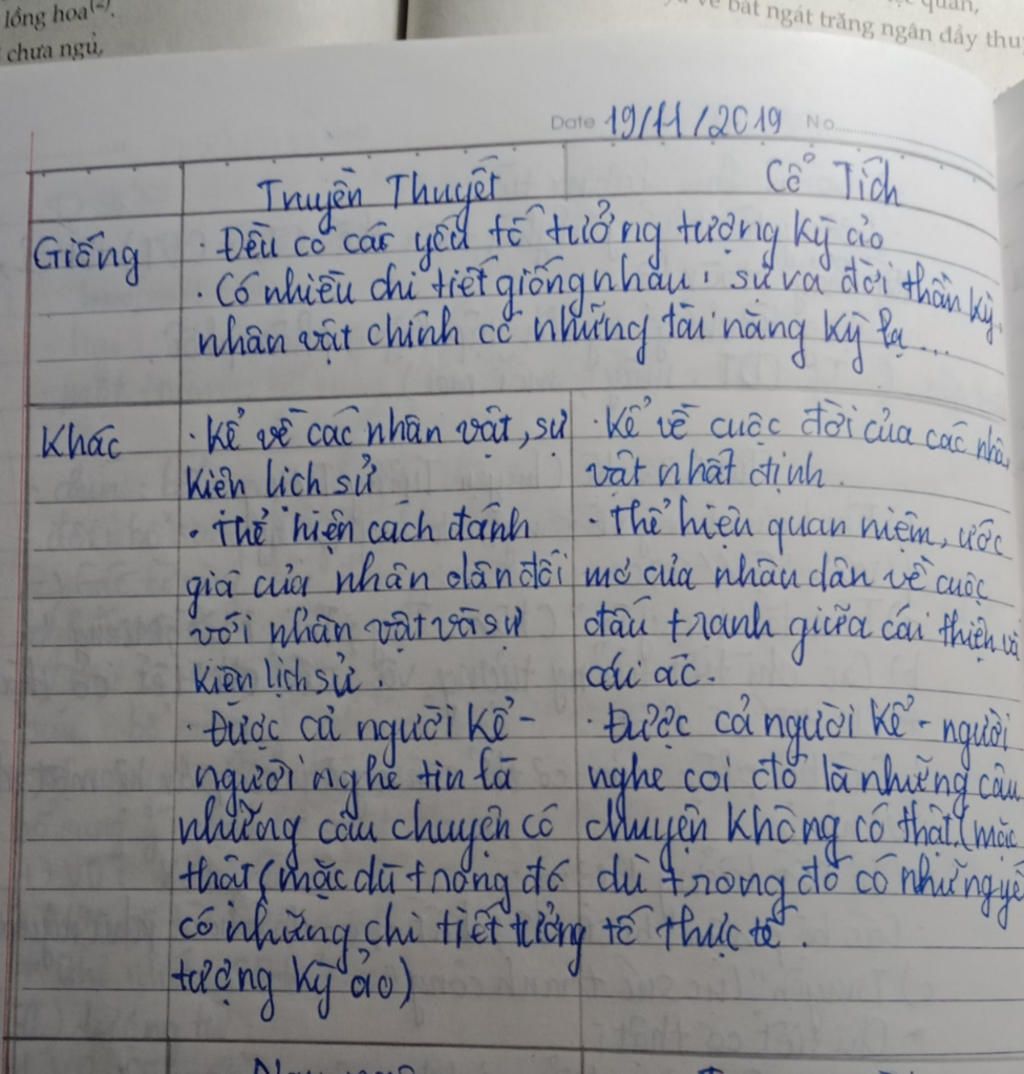 lồng hoa⁽²⁾.
chưa ngủ,
quân,
bát ngát trăng ngân đầy thu
Date 19/11/2019 No
Truyền Thuyết
Cổ Tích
Giống
· Đều có các yếu tố tưởng tượng kỳ ảo
· Có nhiều chi tiết giống nhau: sự ra đời thần kỳ,
nhân vật chính có những tài năng kỳ lạ...
Khác
· Kể về các nhân vật, sự
kiện lịch sử
· thể hiện cách đánh
giá của nhân dân đối
với nhân vật và sự
kiện lịch sử.
· Được cả người kể -
người nghe tin là
những câu chuyện có
thật (mặc dù trong đó
có những chi tiết tưởng
tượng kỳ ảo)
· Kể về cuộc đời của các nhâ
vật nhất định.
· thể hiện quan niệm, ước
mơ của nhân dân về cuộc
đấu tranh giữa cái thiện và
cái ác.
· Được cả người kể - người
nghe coi đó là những câu
chuyện không có thật (mặc
dù trong đó có những yế
tố thực tế.